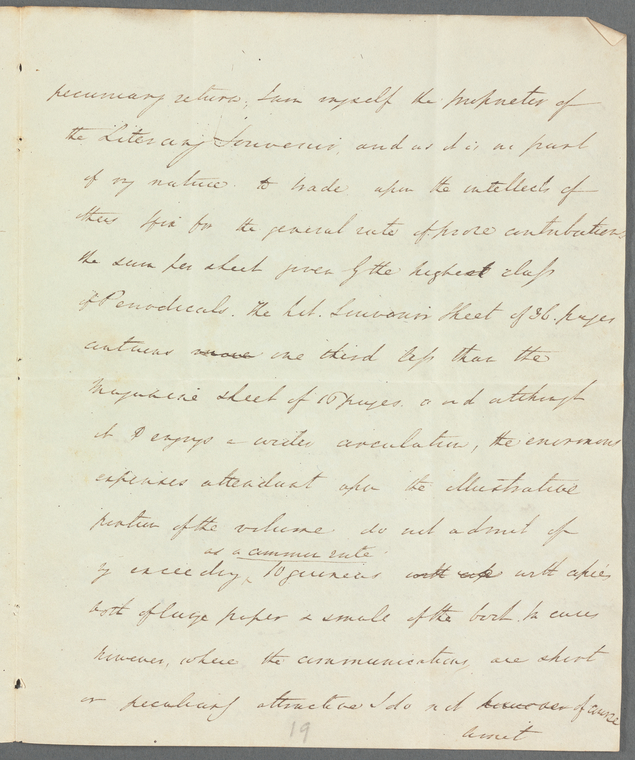 pecuniary return, I am myself the proprietor of
the Literary Souvenir, and as it is no part
of my nature to trade upon the intellects of
others for the general rate of prose contributions
the sum per sheet given by the highest class
of Periodicals. The Lit. Souvenir sheet of 36 pages
contains more one third less than the
Magazine sheet of 16 pages. and although
it enjoys a wider circulation, the enormous
expenses attendant upon the illustrative
portion of the volume do not admit of
my exceeding
as a common rate
10 guineas with copies
both of large paper & small of the book. In cases
however, where the communications are short
or peculiarly attractive I do not however of course
limit
19